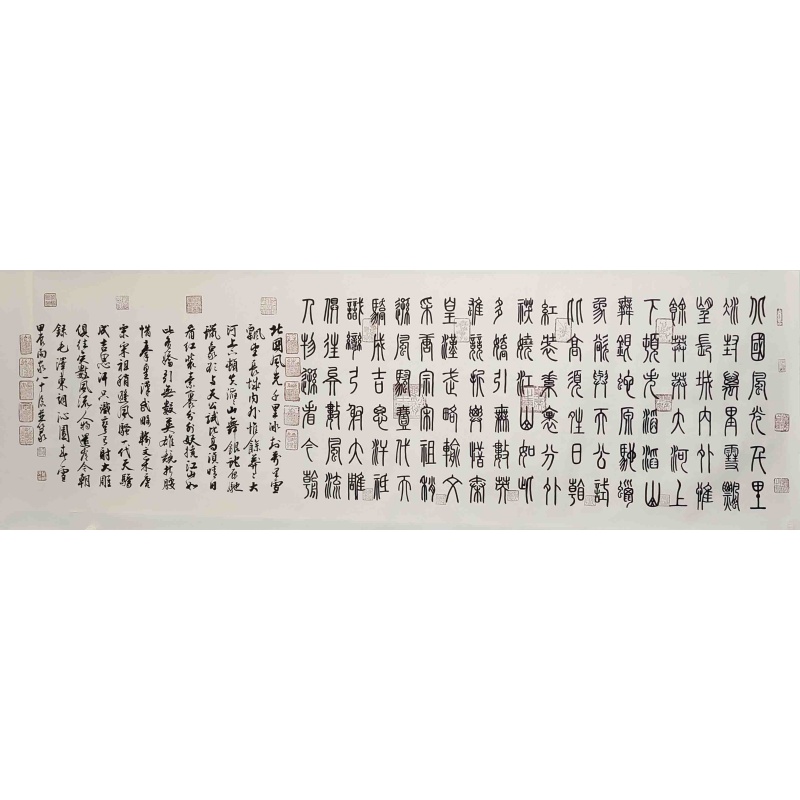 北國風光千里
冰封萬里雪飄
望長城内外惟
餘莽莽大河上
下頓失滔滔山
舞銀蛇原馳蠟
象欲與天公試
比高須晴日看
紅裝素裹分外
妖嬈江山如此
多嬌引無數英
雄競折腰惜秦
皇漢武略輸文
采唐宗宋祖稍
遜風騷一代天
驕成吉思汗祗
識彎弓射大雕
俱往矣數風流
人物還看今朝
北國風光千里冰封萬里雪
飄望長城内外惟餘莽莽大
河上下頓失滔滔山舞銀蛇原馳
蠟象欲与天公試比高須晴日
看紅裝素裹分外妖嬈江山如
此多嬌引無數英雄競折腰
惜秦皇漢武略輸文采唐
宗宋祖稍遜風騷一代天驕
成吉思汗只識彎弓射大雕
俱往矣數風流人物還看今朝
錄毛澤東詞沁園春雪
甲辰 八十